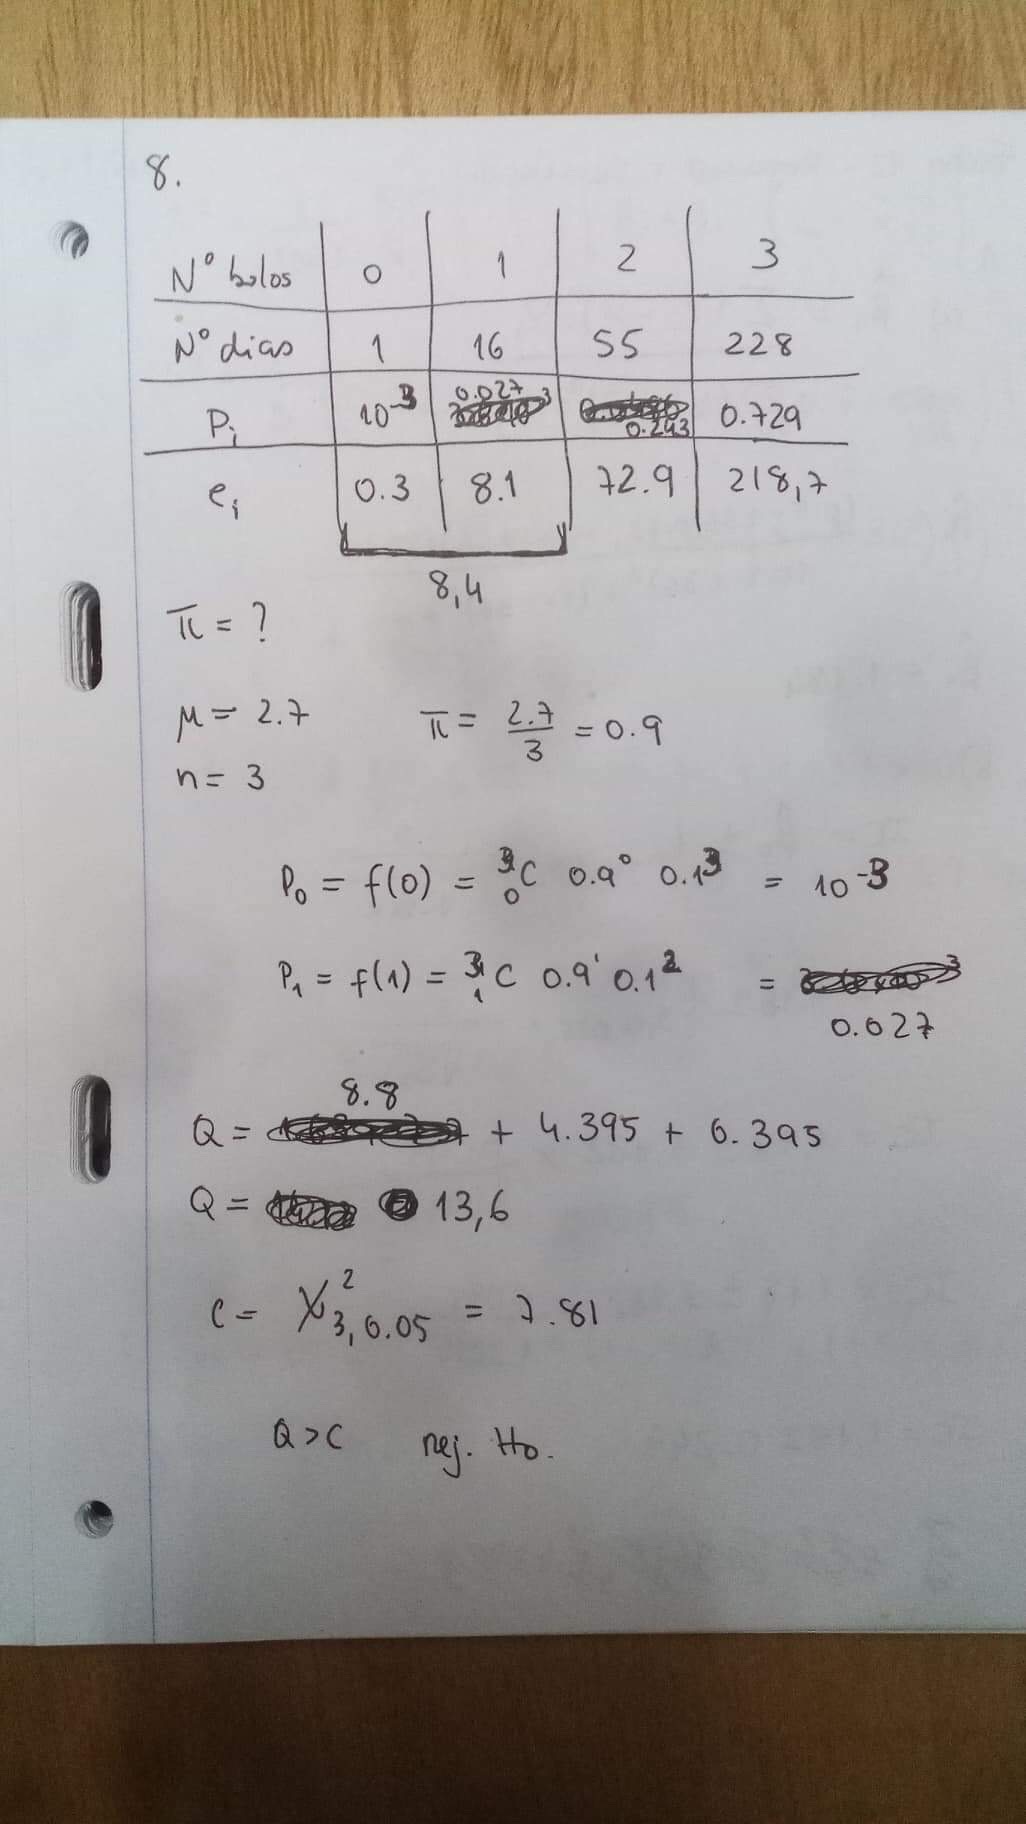 8.
Nº bolos 0 1 2 3
Nº dias 1 16 55 228
Pi 10⁻³ 0.027 0.243 0.729
ei 0.3 8.1 72.9 218,7
8,4
π = ?
μ = 2.7 π = 2.7/3 = 0.9
n = 3
P₀ = f(0) = ³₀C 0.9⁰ 0.1³ = 10⁻³
P₁ = f(1) = ³₁C 0.9¹ 0.1² =
0.027
8.8
Q = + 4.395 + 0.395
Q = 13,6
c = χ²₃,₀.₀₅ = 7.81
Q > C rej. H₀.